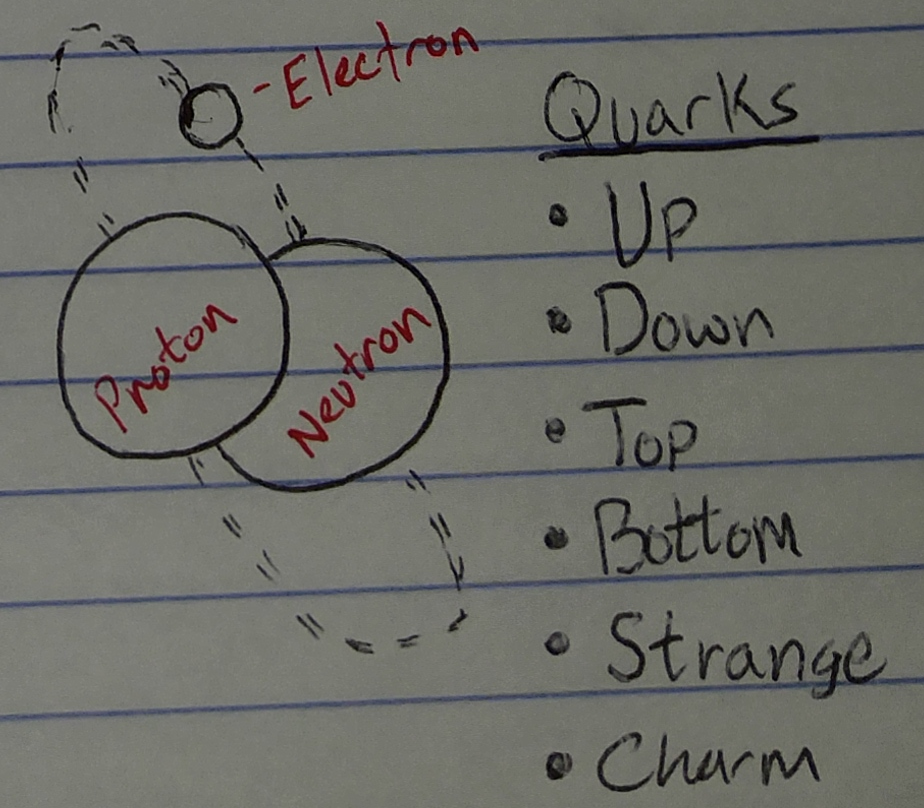 -Electron
Proton
Neutron
Quarks
• Up
• Down
• Top
• Bottom
• Strange
• Charm